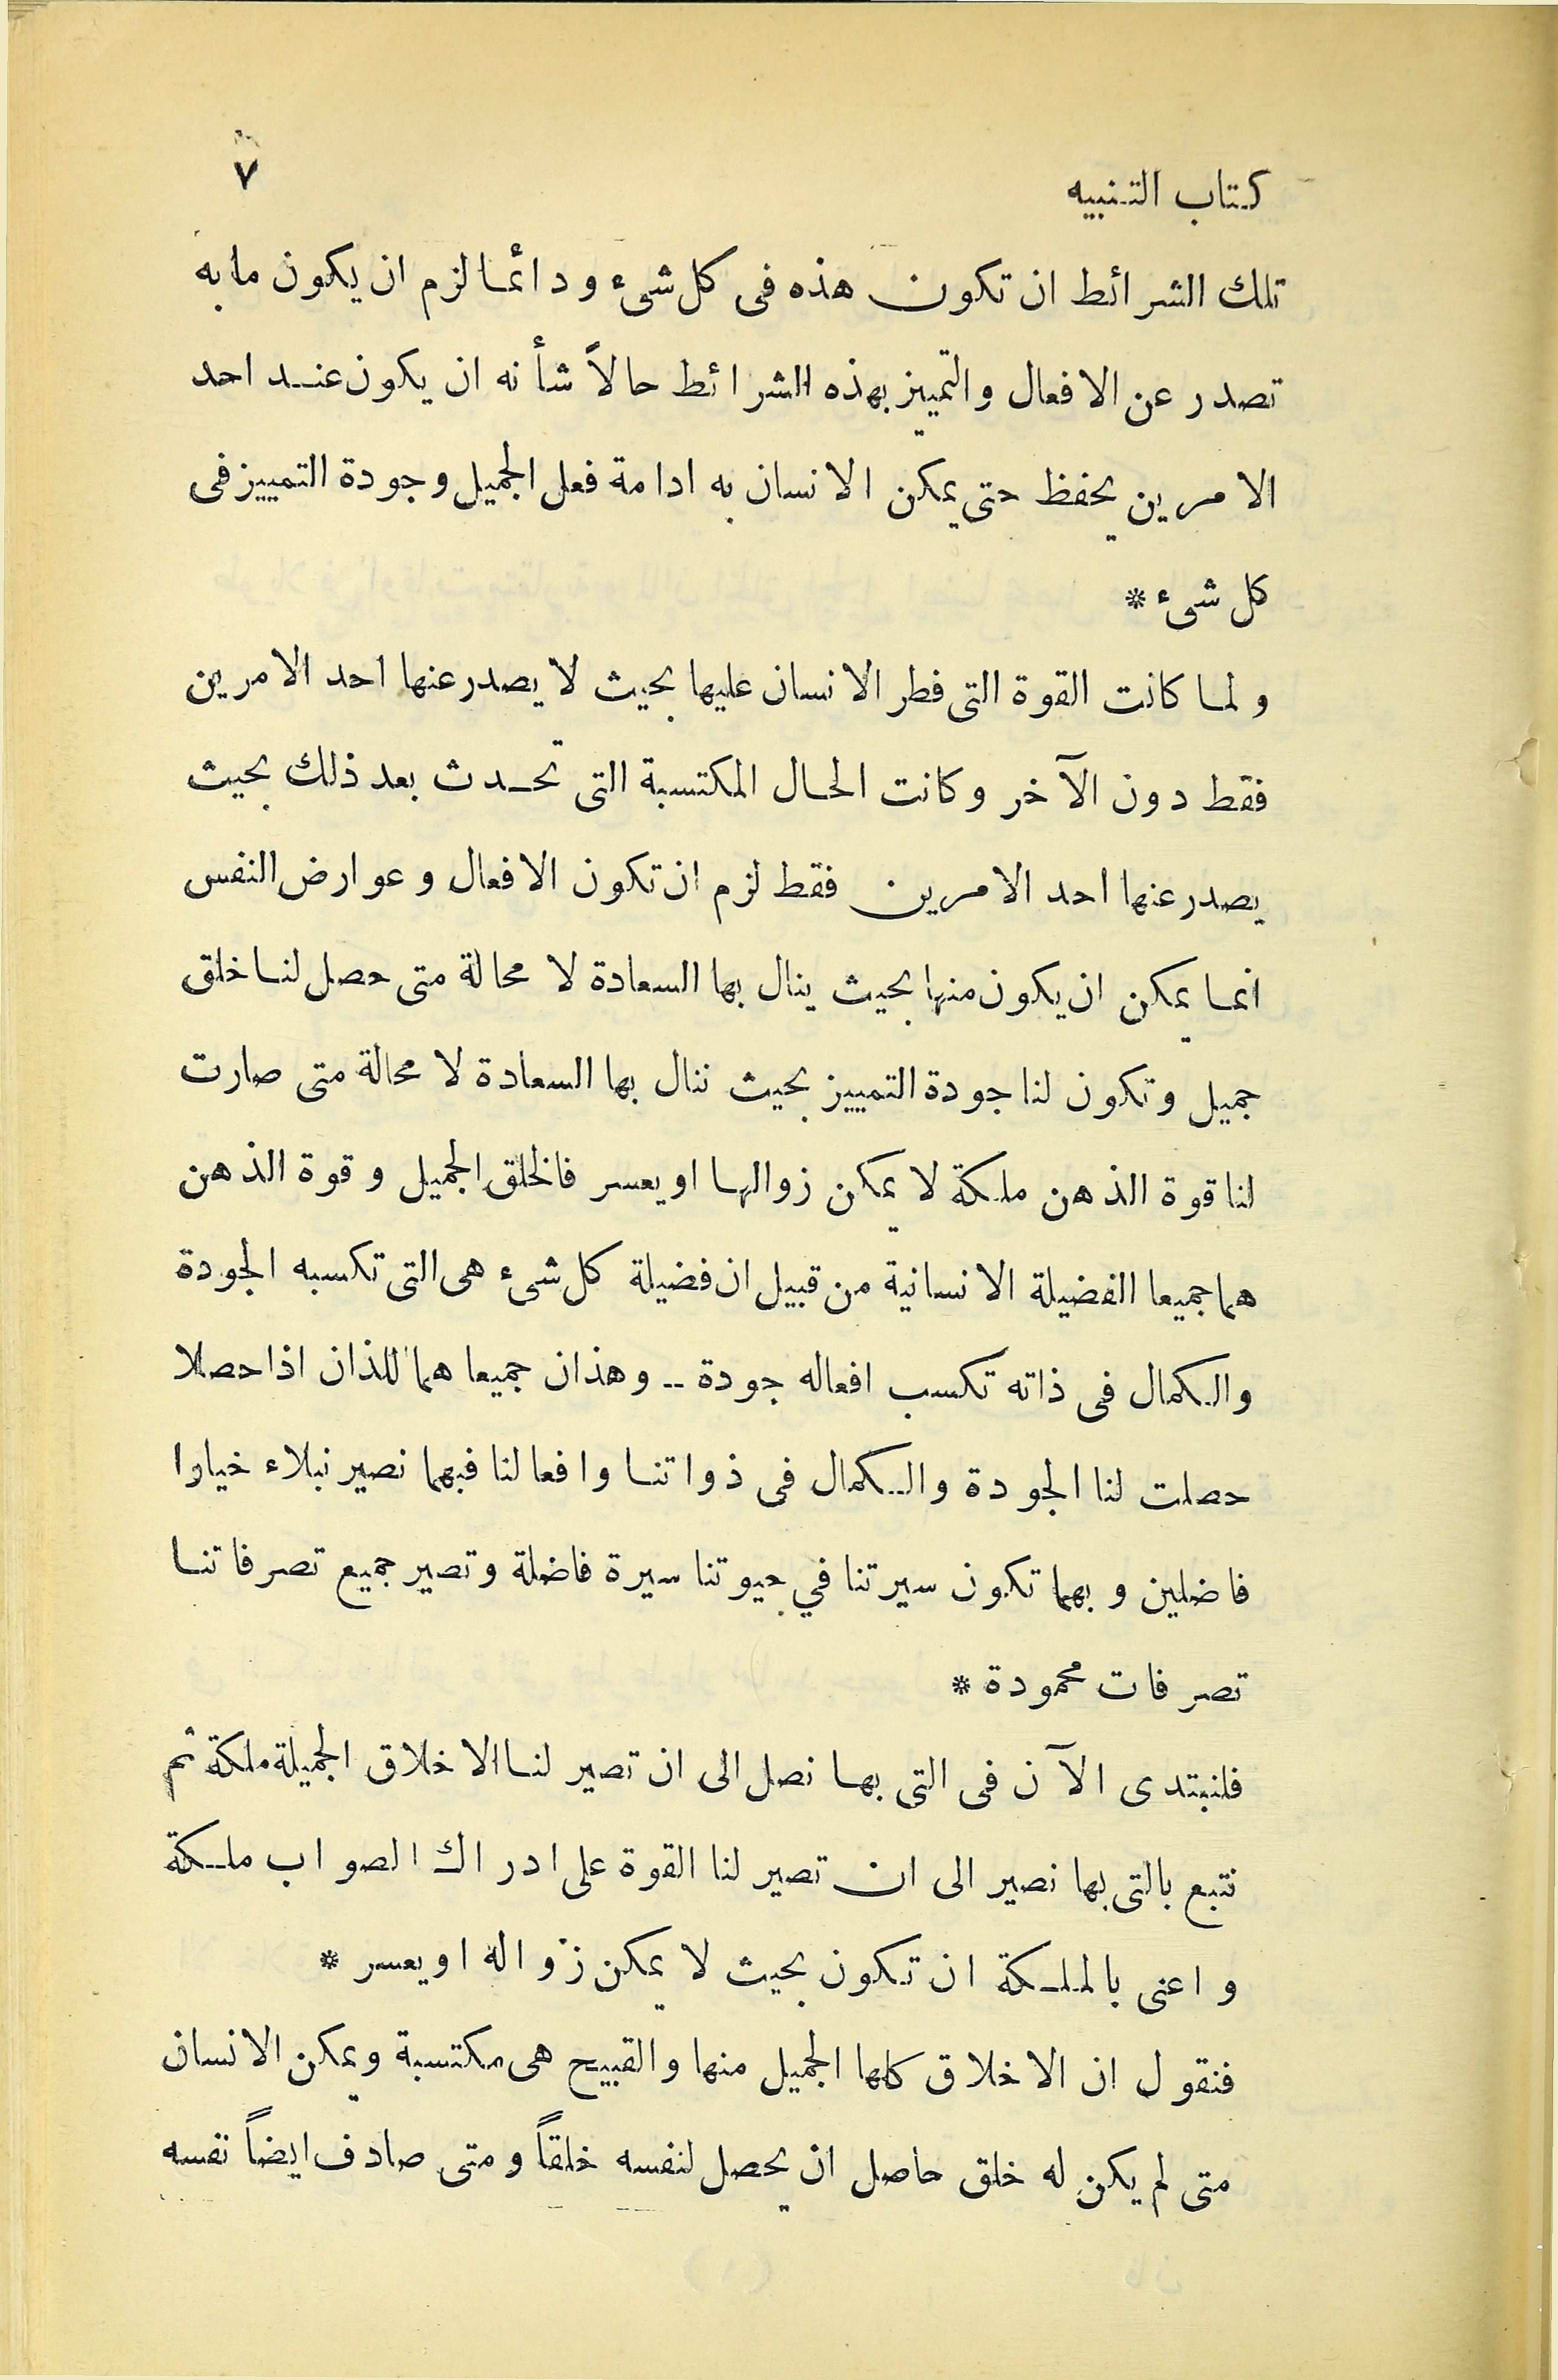 كتاب التنبيه ٧
تلك الشرائط ان تكون هذه فى كل شىء ودائما لزم ان يكون مابه
تصدر عن الافعال والتمييز بهذه الشرائط حالاً شأنه ان يكون عند احد
الامرين يحفظ حتى يمكن الانسان به ادامة فعل الجميل وجودة التمييز فى
كل شىء *
ولما كانت القوة التى فطر الانسان عليها بحيث لا يصدر عنها احد الامرين
فقط دون الآخر وكانت الحال المكتسبة التى تحدث بعد ذلك بحيث
يصدر عنها احد الامرين فقط لزم ان تكون الافعال وعوارض النفس
انما يمكن ان يكون منها بحيث ينال بها السعادة لا محالة متى حصل لنا خلق
جميل وتكون لنا جودة التمييز بحيث ننال بها السعادة لا محالة متى صارت
لنا قوة الذهن ملكة لا يمكن زوالها او يعسر فالخلق الجميل وقوة الذهن
هما جميعا الفضيلة الانسانية من قبيل ان فضيلة كل شىء هى التى تكسبه الجودة
والكمال فى ذاته تكسب افعاله جودة -- وهذان جميعا هما للذان اذا حصلا
حصلت لنا الجودة والكمال فى ذواتنا وافعالنا فبهما نصير نبلاء خيارا
فاضلين وبهما تكون سيرتنا في حيوتنا سيرة فاضلة وتصير جميع تصرفاتنا
تصرفات محمودة *
فلنبتدى الآن فى التى بها نصل الى ان تصير لنا الاخلاق الجميلة ملكة ثم
نتبع بالتى بها نصير الى ان تصير لنا القوة على ادراك الصواب ملكة
واعنى بالملكة ان تكون بحيث لا يمكن زواله او يعسر *
فنقول ان الاخلاق كلها الجميل منها والقبيح هى مكتسبة ويمكن الانسان
متى لم يكن له خلق حاصل ان يحصل لنفسه خلقاً ومتى صادف ايضاً نفسه